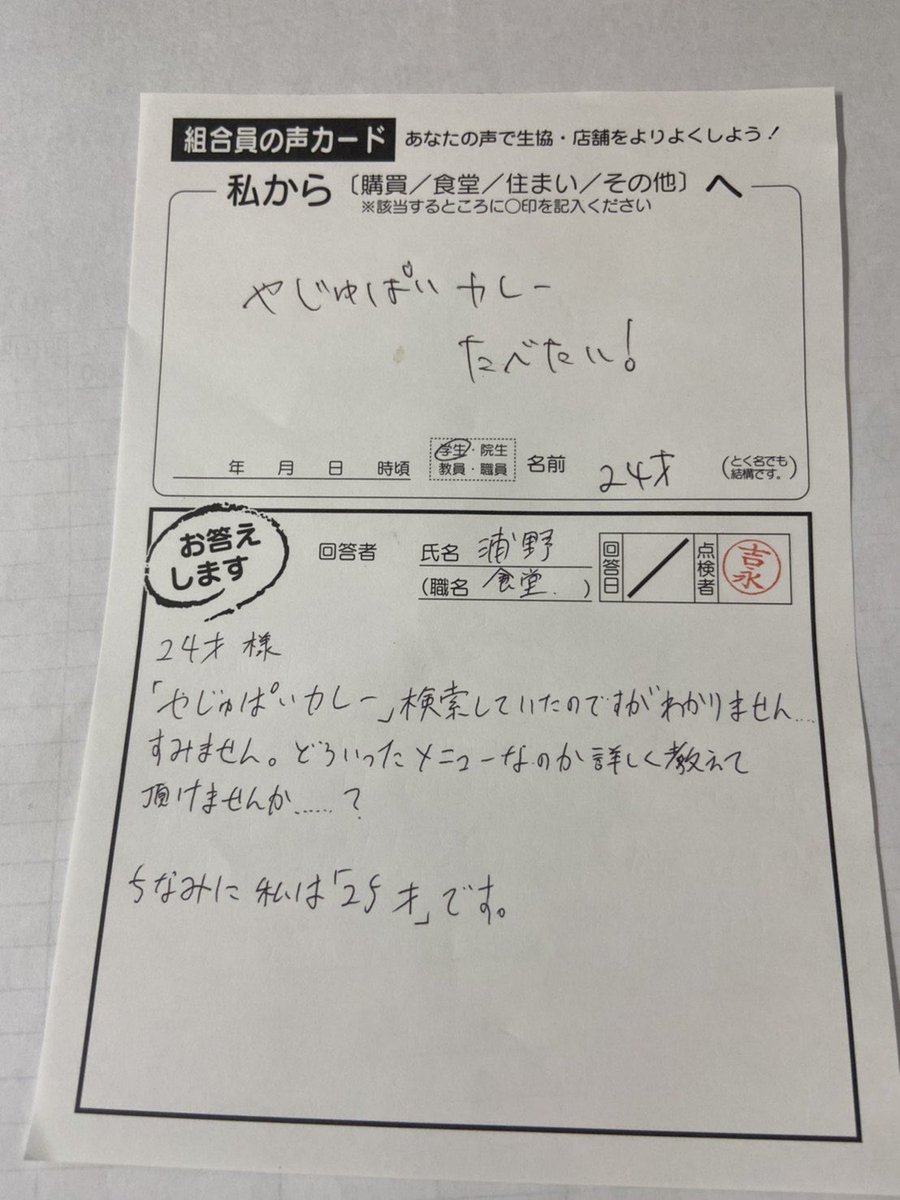 組合員の声カード あなたの声で生協・店舗をよりよくしよう!
私から〔購買/食堂/住まい/その他〕へ
※該当するところに○印を記入ください
やじゅぱいカレー
たべたい!
年 月 日 時頃 学生・院生 教員・職員 名前 24才 (とく名でも結構です。)
お答えします 回答者 氏名 浦野 (職名 食堂.) 回答日 / 点検者 吉永
24才 様
「やじゅぱいカレー」検索していたのですがわかりません......
すみません。どういったメニューなのか詳しく教えて
頂けませんか......?
ちなみに私は「25才」です。